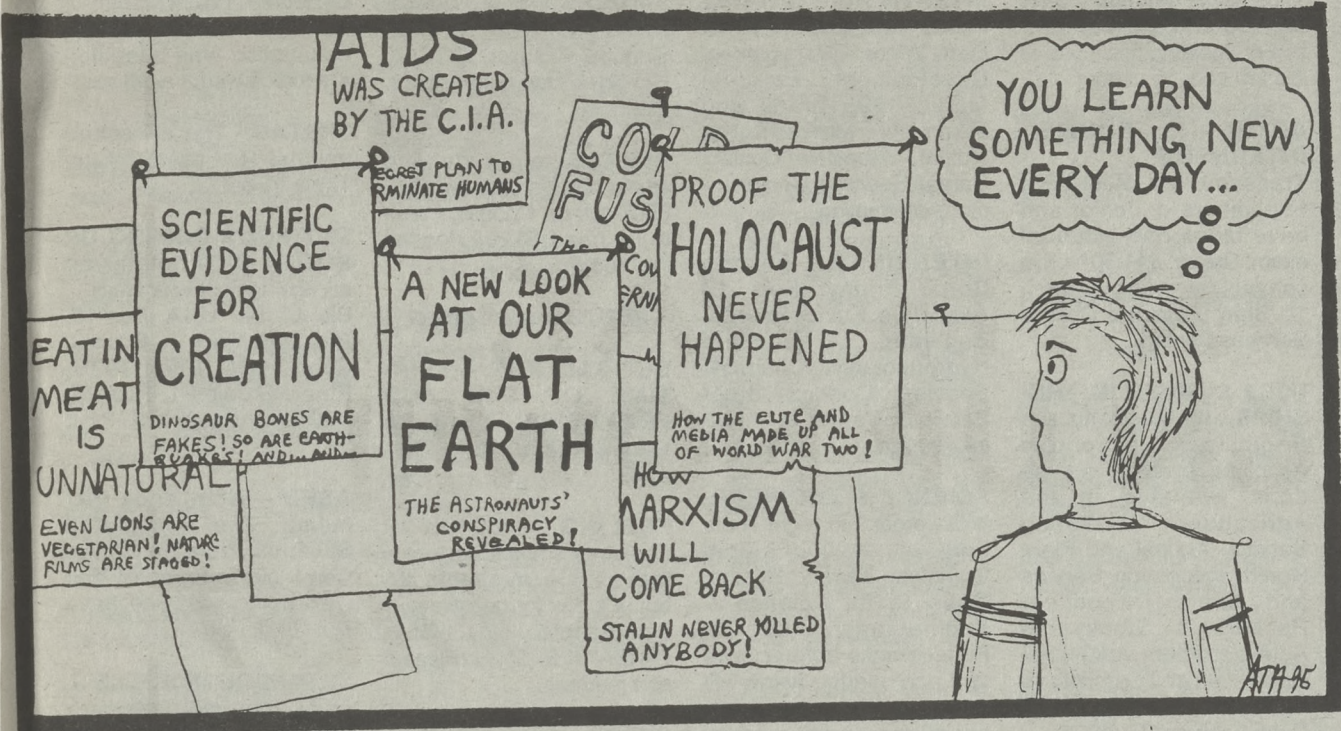 AIDS
WAS CREATED
BY THE C.I.A.
ECRET PLAN TO
RMINATE HUMANS
COLD
FUS
THE
COU
ERNM
SCIENTIFIC
EVIDENCE
FOR
CREATION
DINOSAUR BONES ARE
FAKES! SO ARE EARTH-
QUAKES! AND... AND...
EATIN
MEAT
IS
UNNATURAL
EVEN LIONS ARE
VEGETARIAN! NATURE
FILMS ARE STAGED!
A NEW LOOK
AT OUR
FLAT
EARTH
THE ASTRONAUTS'
CONSPIRACY
REVEALED!
PROOF THE
HOLOCAUST
NEVER
HAPPENED
HOW THE ELITE AND
MEDIA MADE UP ALL
OF WORLD WAR TWO!
HOW
MARXISM
WILL
COME BACK
STALIN NEVER KILLED
ANYBODY!
YOU LEARN
SOMETHING NEW
EVERY DAY...